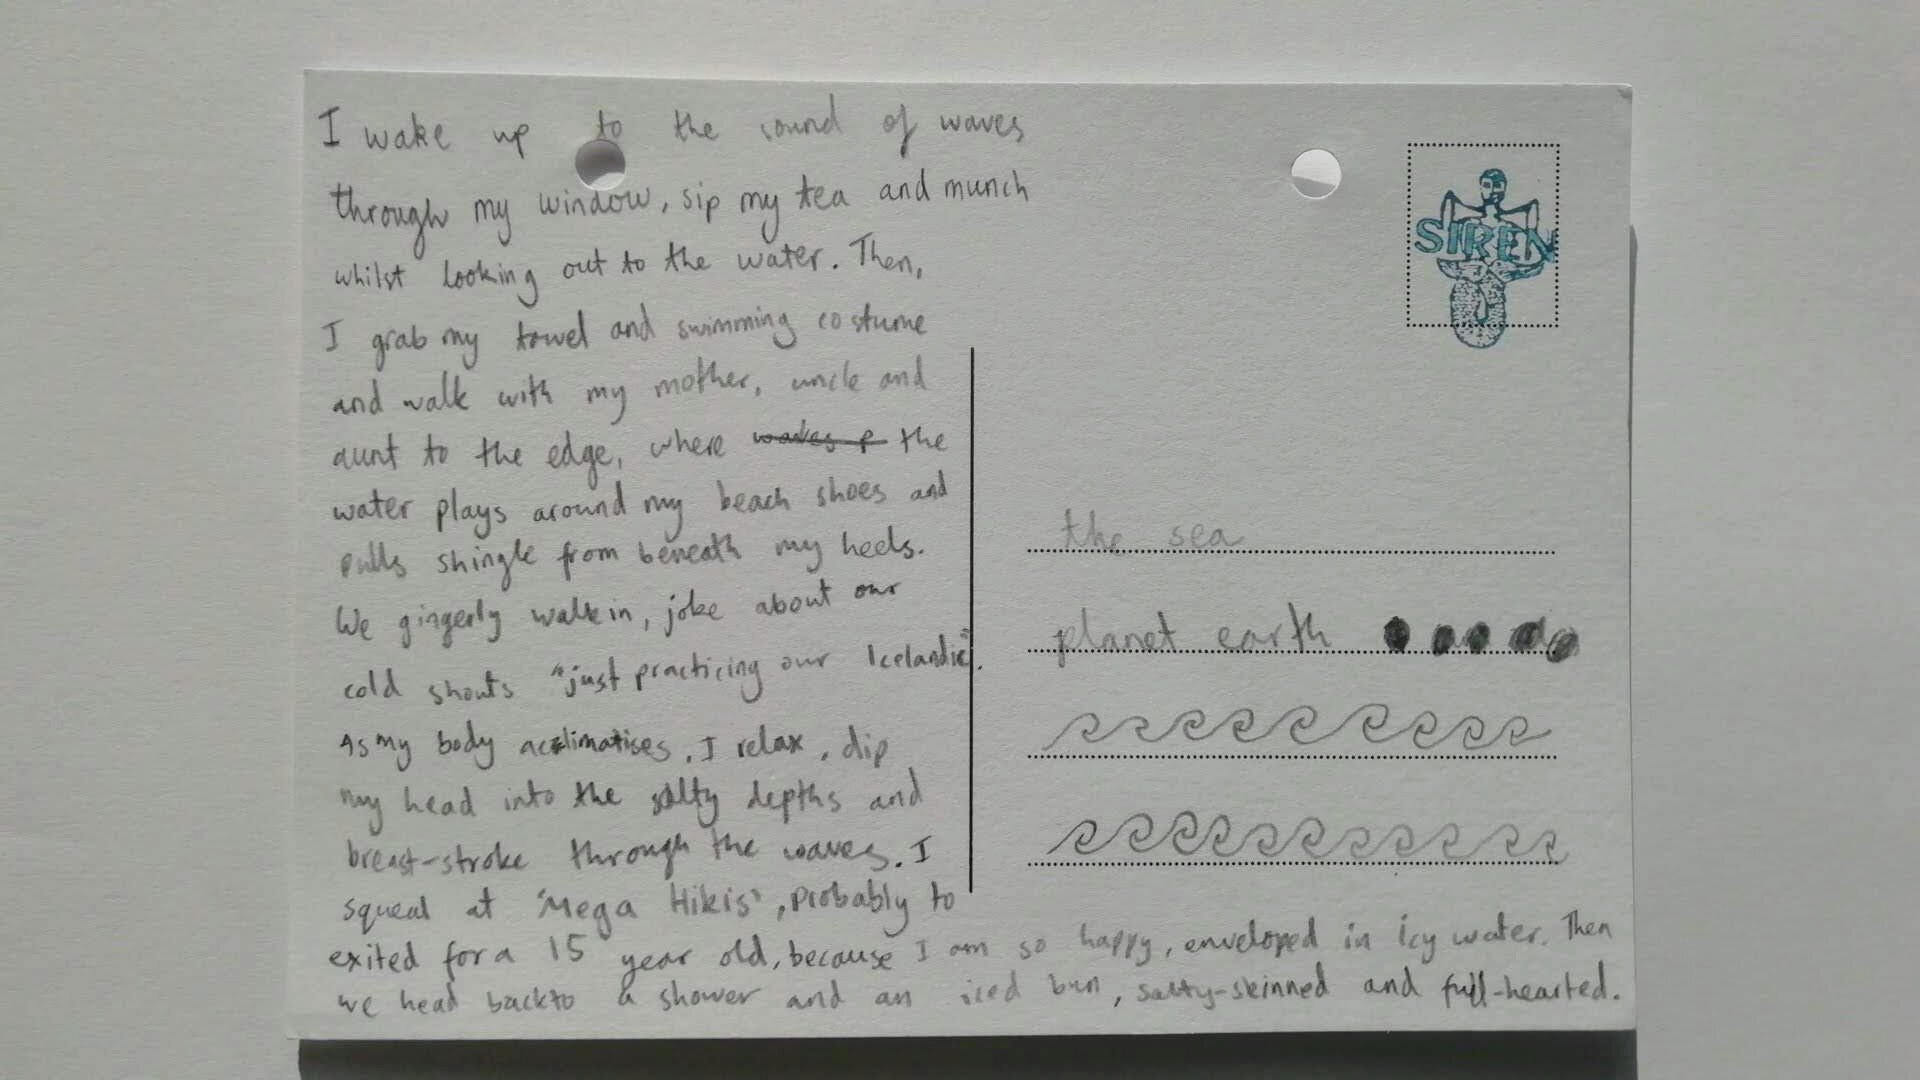 I wake up to the sound of waves
through my window, sip my tea and munch
whilst looking out to the water. Then,
I grab my towel and swimming costume
and walk with my mother, uncle and
aunt to the edge, where waves p the
water plays around my beach shoes and
pulls shingle from beneath my heels.
We gingerly walk in, joke about our
cold shouts "just practicing our Icelandic".
As my body acclimatises, I relax, dip
my head into the salty depths and
breast-stroke through the waves. I
squeal at 'Mega Hikis', probably to
exited for a 15 year old, because I am so happy, enveloped in icy water. Then
we head back to a shower and an iced bun, salty-skinned and full-hearted.
SIREN
the sea
planet earth